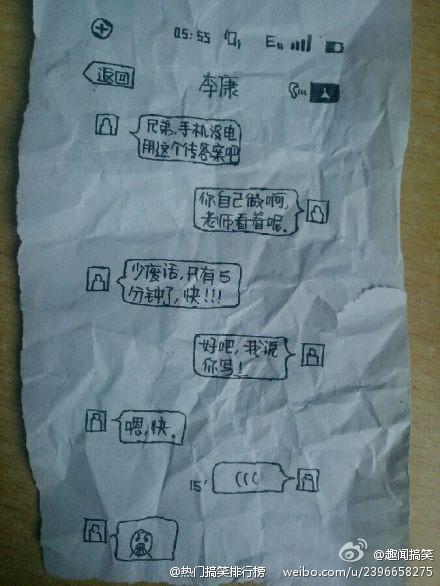 05:55 E
返回
李康
兄弟,手机没电
用这个传答案吧
你自己做啊,
老师看着呢.
少废话,只有5
分钟了,快!!!
好吧,我说
你写!
嗯,快.
15'
@趣闻搞笑
@热门搞笑排行榜 weibo.com/u/2396658275